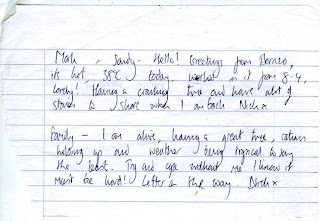 Mark , Sandy - Hello! Greetings from Borneo,
its hot, 38°C today. worked in it from 8-4,
lovely! Having a cracking time and have alot of
stories to share when I am back. Nick x
Family - I am alive, having a great time,
holding up and weather being tropical to say
the least. Try and cope without me I know it
must be hard! Letter on the way. Nick x